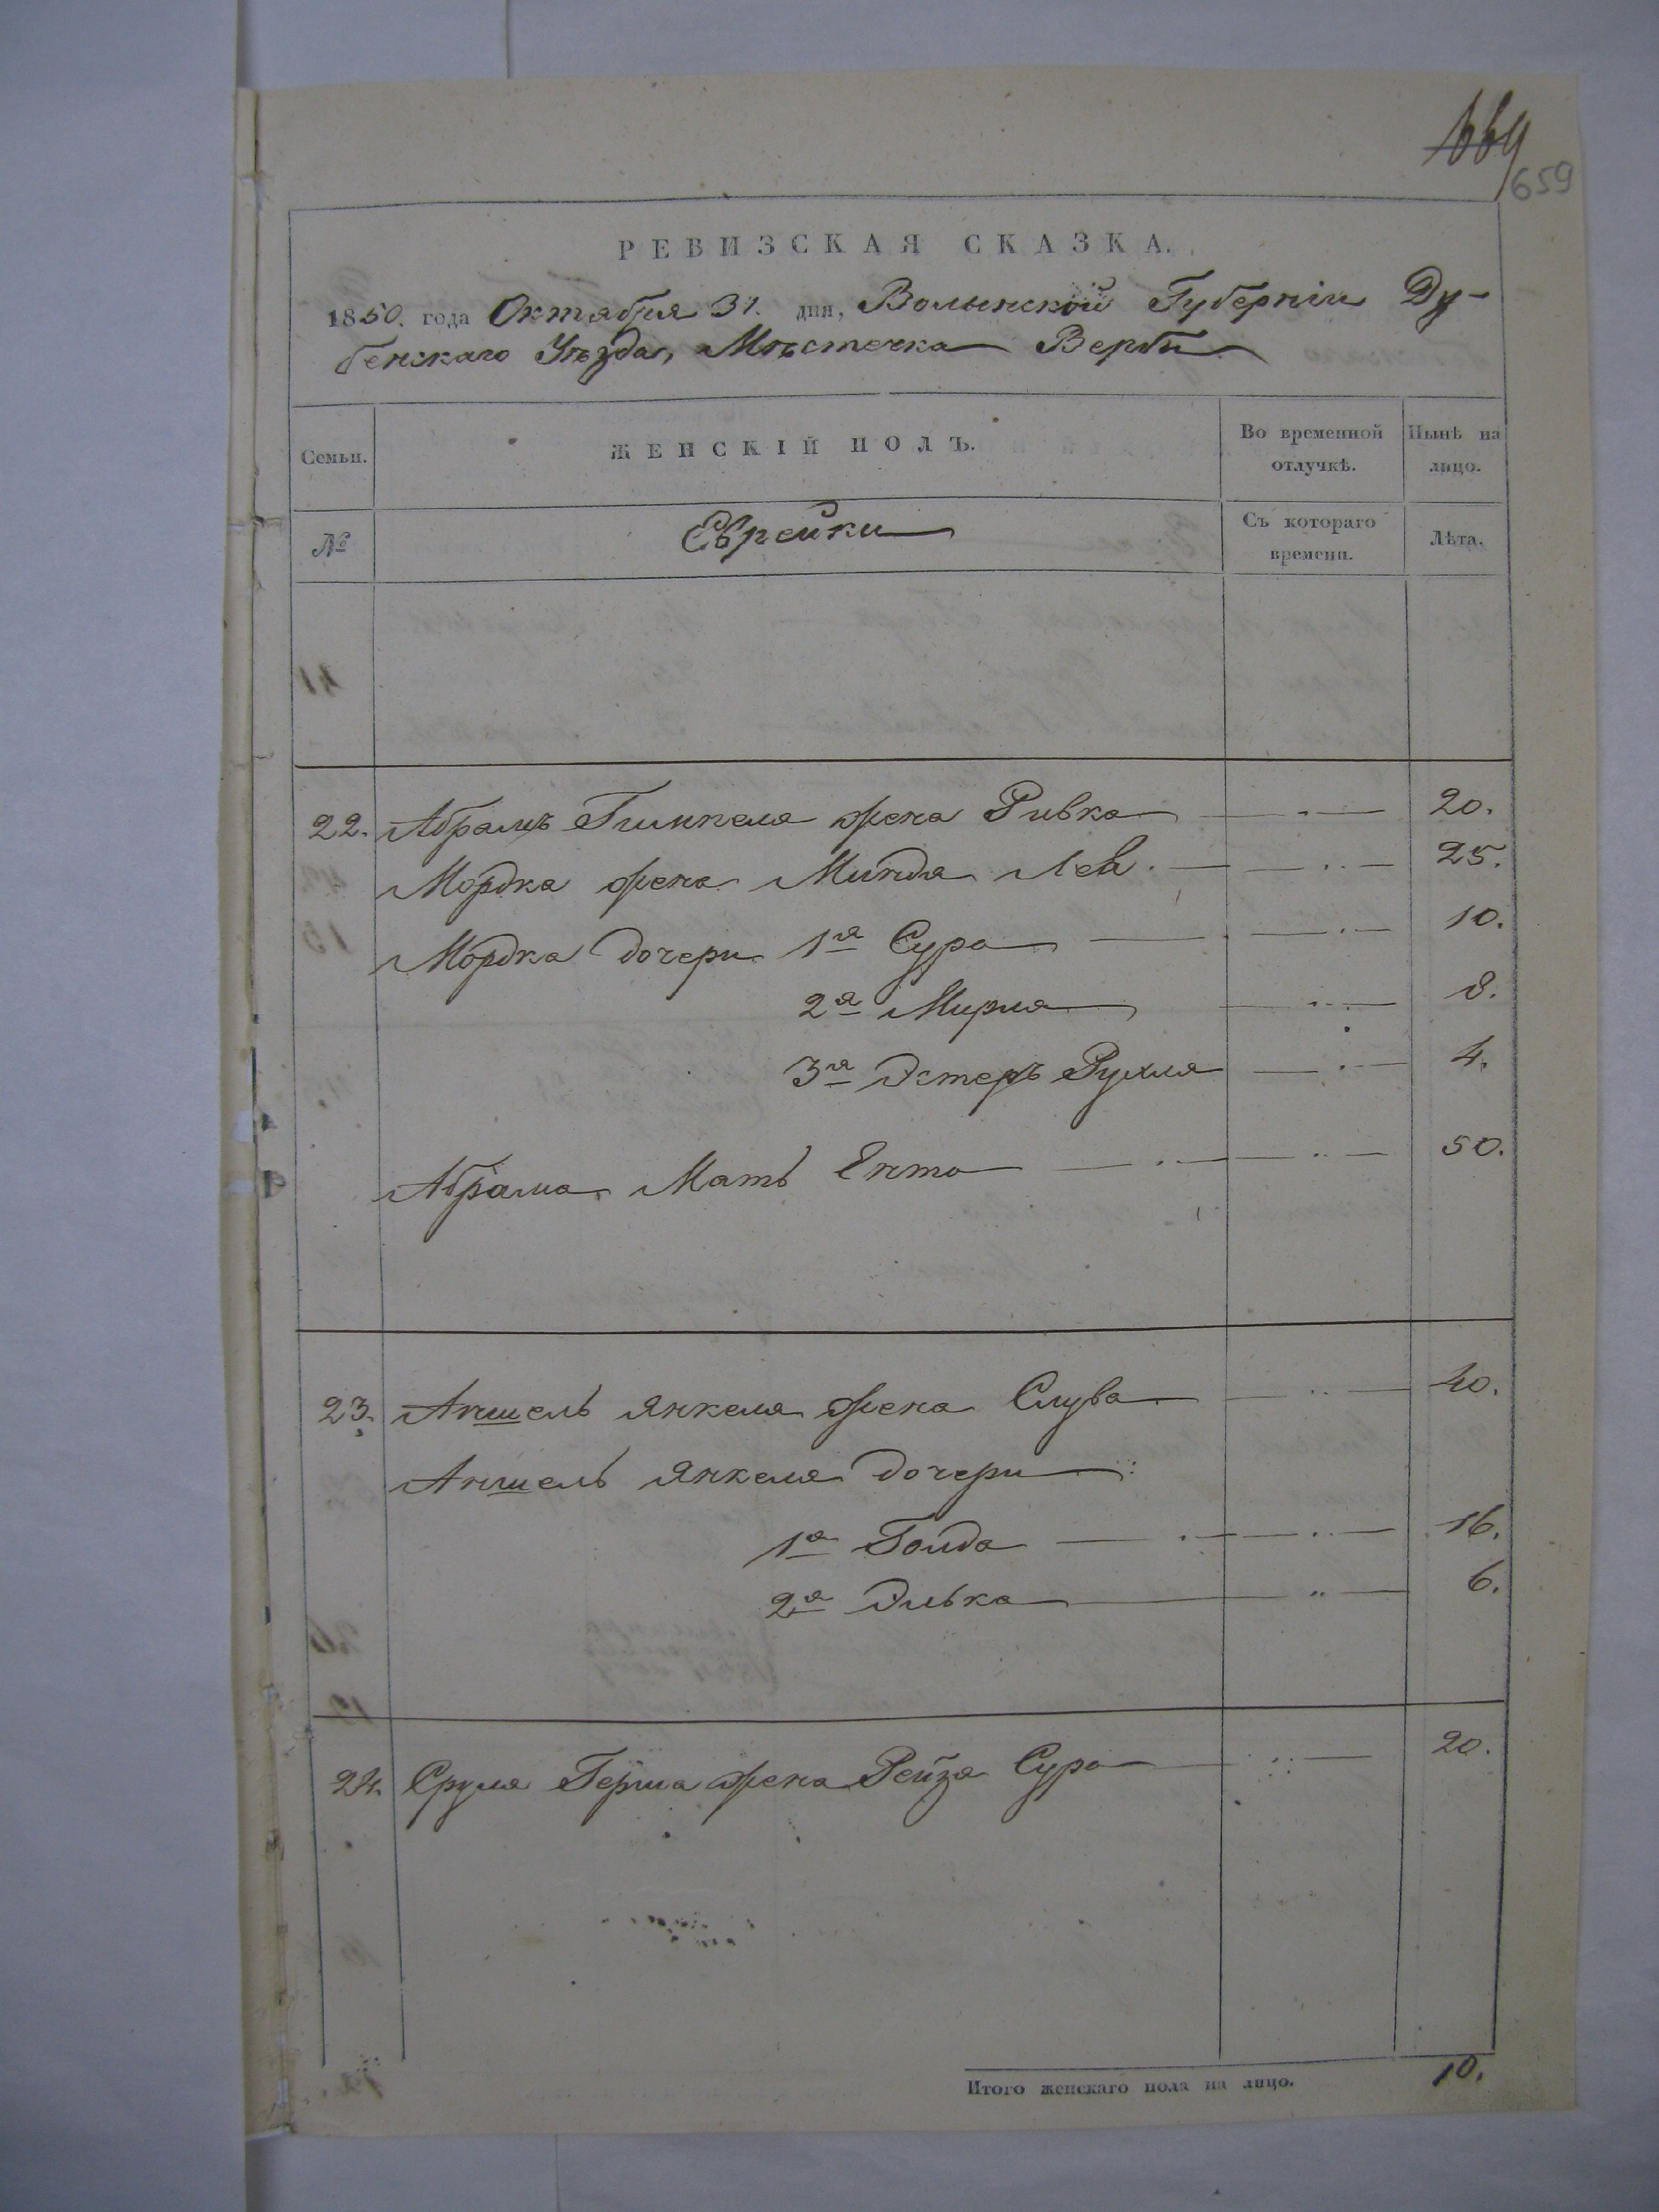 669
659
РЕВИЗСКАЯ СКАЗКА.
1850. года Октября 31. дня, Волынской Губерніи Ду-
бенскаго Уѣзда, Мѣстечка Вербы
Семьи.
ЖЕНСКІЙ ПОЛЪ.
Во временной отлучкѣ.
Нынѣ на лицо.
№
Еврейки
Съ котораго времени.
Лѣта.
22. Абрамъ Гимпеля жена Ривка 20.
Мордка жена Минда Лея 25.
Мордка дочери 1я Сура 10.
2я Мирля 8.
3я Эстеръ Рухля 4.
Абрама Мать Ента 50.
23. Аншель Янкеля жена Слува 40.
Аншель Янкеля дочери:
1я Голда 16.
2я Элька 6.
24. Сруля Герша жена Рейза Сура 20.
Итого женскаго пола на лицо. 10.